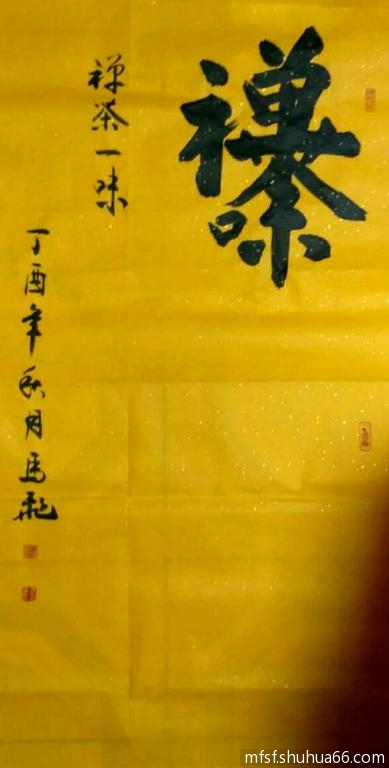 禅茶一味
禅茶一味
丁酉年秋月马飞
mfsfshuhua66.com